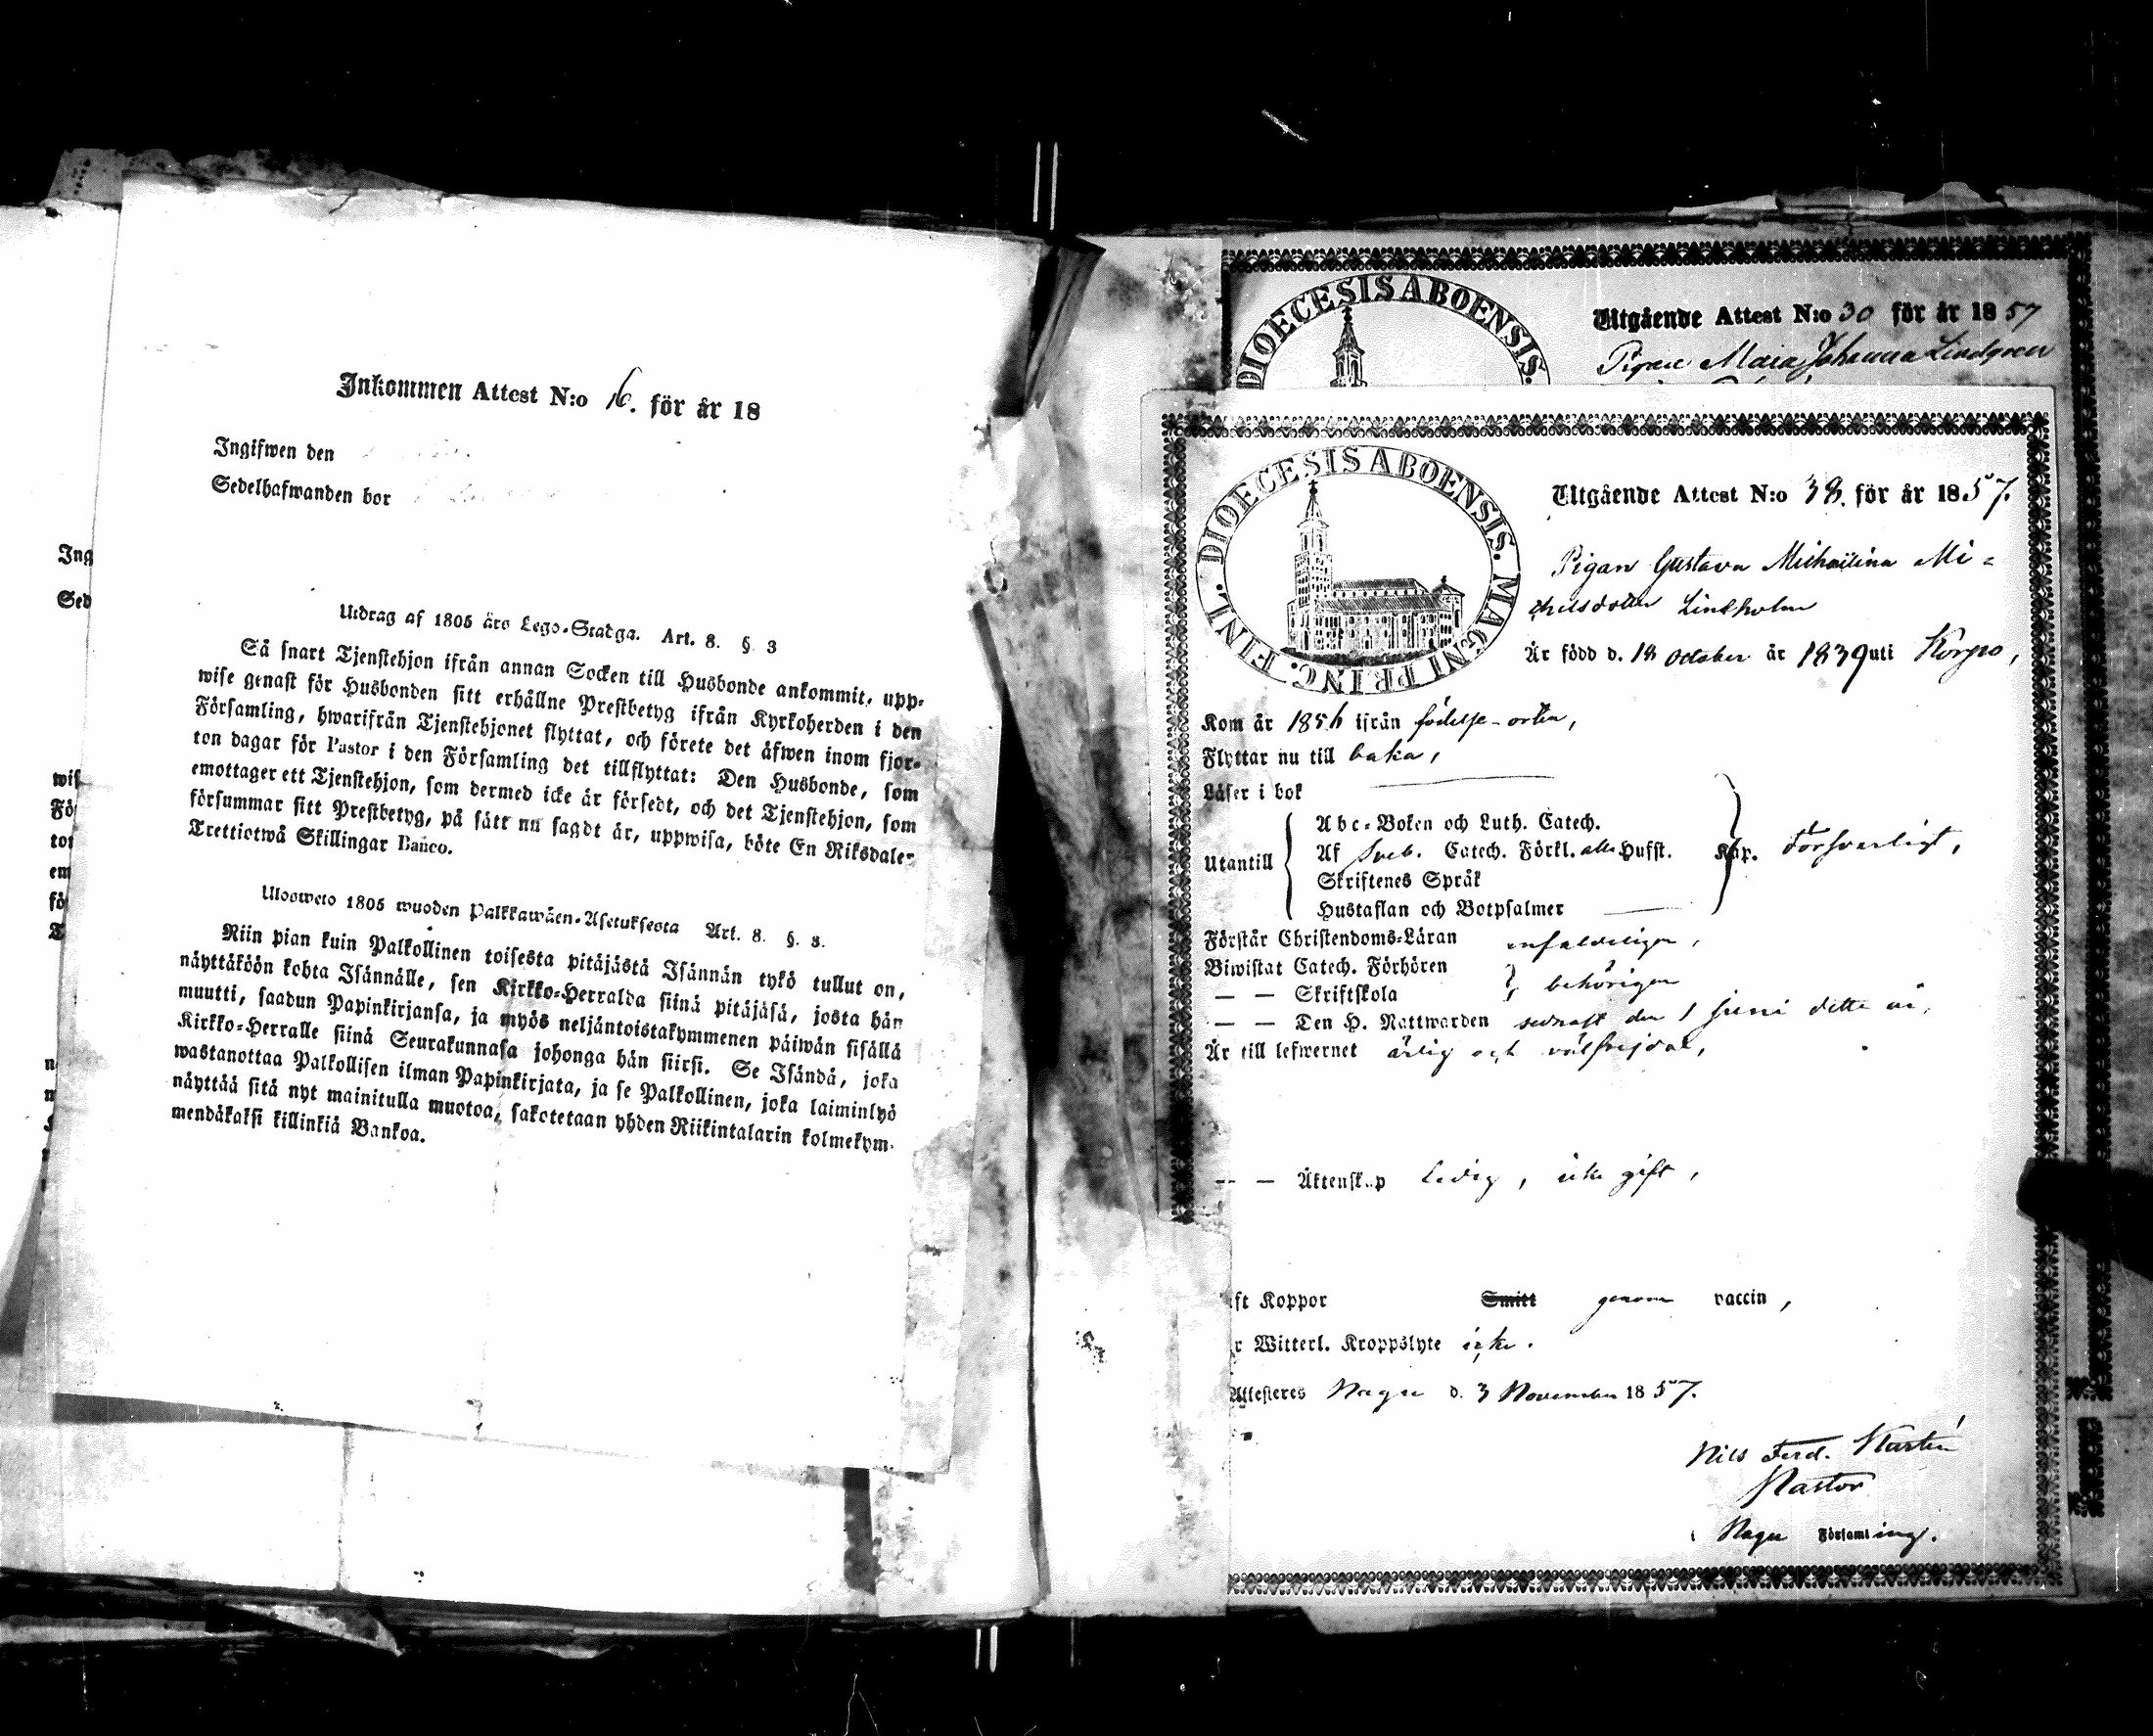 Inkommen Attest N:o 16. för år 18
Ingifwen den
Sedelhafwanden bor
Utdrag af 1805 års Lego-Stadga. Art. 8. § 3
Så snart Tjenstehjon ifrån annan Socken till Husbonde ankommit, upp-
wise genast för Husbonden sitt erhållne Prestbetyg ifrån Kyrkoherden i den
Församling, hwarifrån Tjenstehjonet flyttat, och förete det äfwen inom fjor-
ton dagar för Pastor i den Församling det tillflyttat: Den Husbonde, som
emottager ett Tjenstehjon, som dermed icke är försedt, och det Tjenstehjon, som
försummar sitt Prestbetyg, på sätt nu sagdt är, uppwisa, böte En Riksdaler
Trettiotwå Skillingar Banco.
Uloswето 1805 wuoden Palkkawäen-Asetuksesta Art. 8. §. 3.
Niin pian kuin Palkollinen toisesta pitäjästä Isännän tykö tullut on,
näyttäköön kohta Isännälle, sen Kirkko-Herralda siinä pitäjäsä, josta hän
muutti, saadun Papinkirjansa, ja myös neljäntoistakymmenen päiwän sisällä
Kirkko-Herralle siinä Seurakunnasa johonga hän siirsi. Se Isändä, joka
wastanottaa Palkollisen ilman Papinkirjata, ja se Palkollinen, joka laiminlyö
näyttää sitä nyt mainitulla muotoa, sakotetaan yhden Riikintalarin kolmekym-
mendäkaksi killinkiä Bankoa.
Ing
Sed
wis
För
ton
em
för
T
DIOECESIS ABOENSIS.
Utgående Attest N:o 30 för år 1857
Pigan Maria Johanna Lindgren
DIOECESIS ABOENSIS. MAGNI PRINC. FINL.
Utgående Attest N:o 38. för år 1857.
Pigan Gustava Michaëlina Mi=
chelsdotter Lindholm
Är född d. 18 October år 1839 uti Korpo,
Kom år 1856 ifrån födelse-orten,
Flyttar nu till baka,
Läser i bok
Abc-Boken och Luth. Catech.
Utantill Af Sveb. Catech. Förkl. alla Husst. Kap. Försvarligt,
Skriftenes Språk
Hustaflan och Botpsalmer
Förstår Christendoms-Läran enfaldeligen,
Biwistat Catech. Förhören
— — Skriftskola behörigen
— — Den H. Nattwarden sednast den 1 Juni detta år,
Är till lefwernet ärlig och välfrejdad,
— — Äktenskap Ledig, icke gift,
ft Koppor Smitt genom vaccin,
r Witterl. Kroppslyte icke.
Attesteres Nagu d. 3 November 1857.
Nils Ferd.
Pastor
i Nagu Församling.